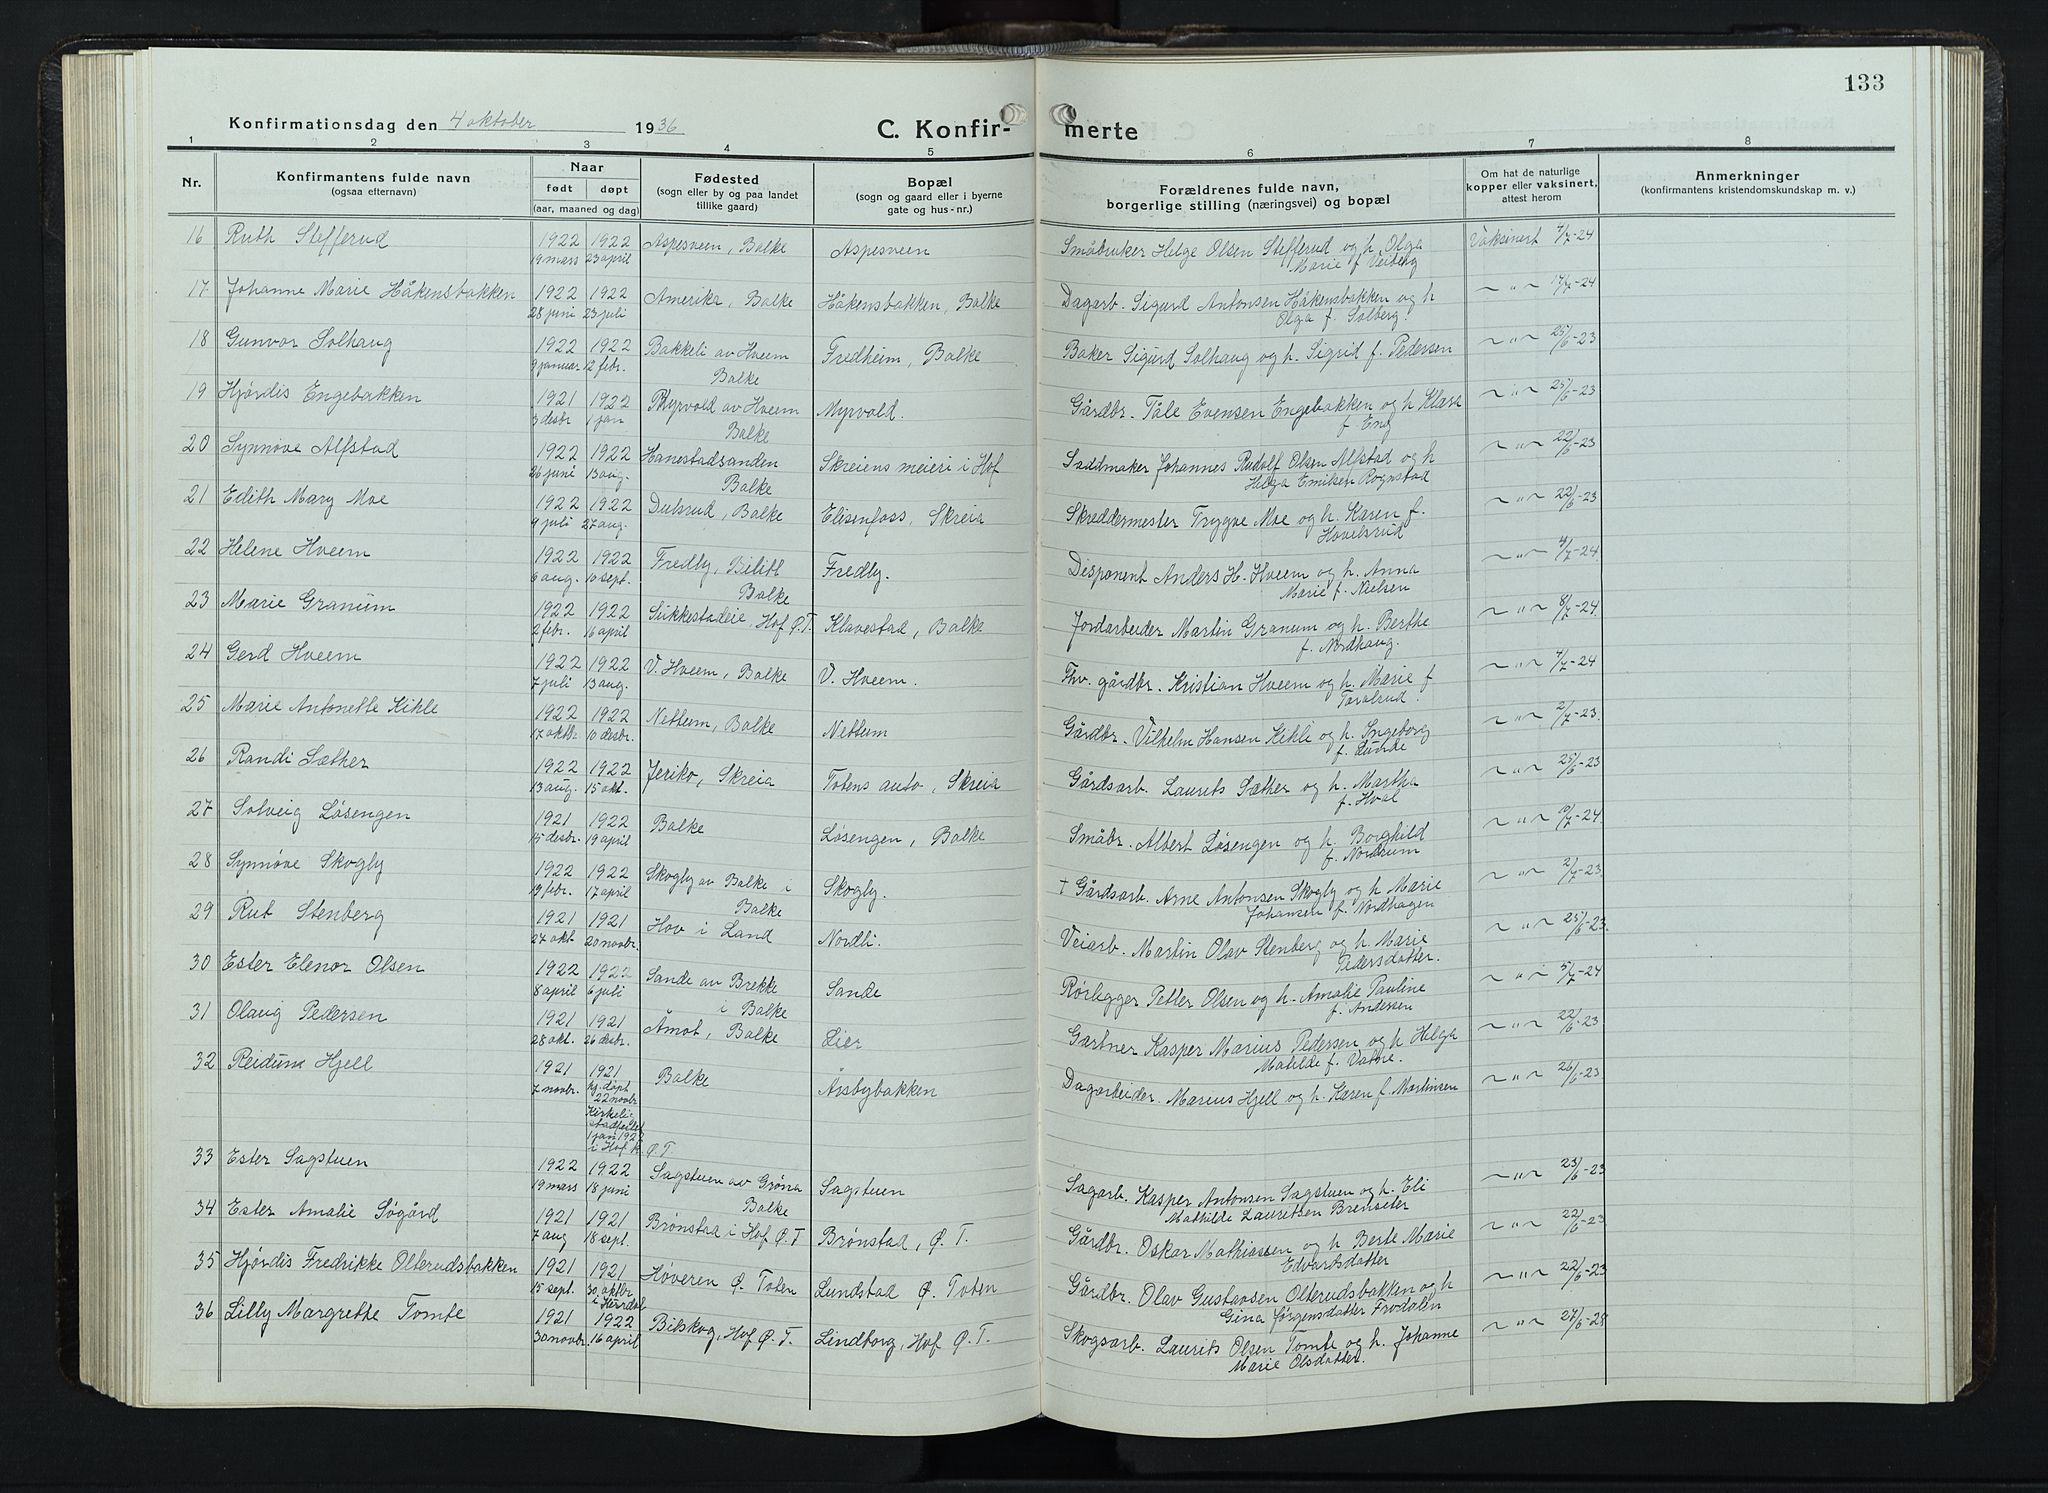 133
Konfirmationsdag den 4 oktober 1936
C. Konfirmerte
1 2 3 4 5 6 7 8
Nr. | Konfirmantens fulde navn (ogsaa efternavn) | Naar født døpt (aar, maaned og dag) | Fødested (sogn eller by og paa landet tillike gaard) | Bopæl (sogn og gaard eller i byerne gate og hus-nr.) | Forældrenes fulde navn, borgerlige stilling (næringsvei) og bopæl | Om hat de naturlige kopper eller vaksinert, attest herom | Anmerkninger (konfirmantens kristendomskundskap m. v.)
16 Ruth Stefferud 1922 19 mars 1922 23 april Aspesveen, Balke Aspesveen Småbruker Helge Olsen Stefferud og h. Olga Marie f. Veiberg Vaksinert 4/7-24
17 Johanne Marie Håkensbakken 1922 28 juni 1922 23 juli Amerika, Balke Håkensbakken, Balke Dagarb. Sigurd Antonsen Håkensbakken og h Olga f. Solberg. ~ " ~ 17/7-24
18 Gunvor Solhaug 1922 9 januar 1922 12 febr. Bakkeli av Hveem Balke Fredheim, Balke Baker Sigurd Solhaug og h. Sigrid f. Pedersen ~ " ~ 25/6-23
19 Hjørdis Engebakken 1921 3 desbr 1922 1 jan Myrvold av Hveem Balke Myrvold. Gårdbr. Tåle Evensen Engebakken og h Klara f. Eng ~ " ~ 25/6-23
20 Synnøve Alfstad 1922 26 juni 1922 13 aug. Hanestadsanden Balke Skreiens meieri i Hof Sadmaker Johannes Rudolf Olsen Alfstad og h Helga Emilsen Rognstad ~ " ~ 22/6-23
21 Edith Mary Moe 1922 9 juli 1922 27 aug. Dulsrud, Balke Elisenfoss, Skreia Skreddermester Trygve Moe og h. Karen f. Hovelsrud ~ " ~ 22/6-23
22 Helene Hveem 1922 6 aug. 1922 10 sept. Fredly, Bilitt Balke Fredly. Disponent Anders H. Hveem og h. Anna Marie f. Nielsen ~ " ~ 4/7-24
23 Marie Granum 1922 2 febr. 1922 16 april Sukkestadeie, Hof Ø.T. Klavestad, Balke Jordarbeider Martin Granum og h. Berthe f. Nordhaug. ~ " ~ 8/7-24
24 Gerd Hveem 1922 7 juli 1922 13 aug. V. Hveem, Balke V. Hveem. Fhv. gårdbr. Kristian Hveem og h. Marie f Taralrud. ~ " ~ 4/7-24
25 Marie Antonette Kihle 1922 17 oktbr 1922 10 desbr. Nettum, Balke Nettum Gårdbr. Vilhelm Hansen Kihle og h. Ingeborg f. Lunde ~ " ~ 2/7-23.
26 Randi Sæther 1922 13 aug. 1922 15 okt. Jeriko, Skreia Totens auto, Skreia Gårdsarb. Laurits Sæther og h. Martha f. Hval ~ " ~ 25/6-23
27 Solveig Løsengen 1921 15 desbr. 1922 19 april Balke Løsengen, Balke Småbr. Albert Løsengen og h. Borghild f. Nordrum ~ " ~ 10/7-24
28 Synnøve Skogly 1922 19 febr. 1922 17 april Skogly av Balke i Balke Skogly. † Gårdsarb. Arne Antonsen Skogly og h. Marie Johansen f. Nordhagen ~ " ~ 2/7-23
29 Rut Stenberg 1921 27 okt. 1921 20 novbr. Hov i Land Nordli. Veiarb. Martin Olav Stenberg og h. Marie Pedersdatter. ~ " ~ 25/6-23
30 Ester Elenor Olsen 1922 8 april 1922 6 juli Sande av Brekke i Balke Sande Rørlegger Petter Olsen og h. Amalie Pauline f. Andersen ~ " ~ 5/7-24
31 Olaug Pedersen 1921 28 okt. 1921 26 desbr. Åmot, Balke Lier Gartner Kasper Marius Pedersen og h Helga Matilde f. Vatne. ~ " ~ 22/6-23
32 Reidun Hjell 1921 7 novbr. 1921 hj. døpt 22 novbr. Kirkelig stadfestet 1 jan 1922 i Hof k. Ø T Balke Åsbybakken Dagarbeider Marius Hjell og h. Karen f. Martinsen ~ " ~ 26/6-23
33 Ester Sagstuen 1922 19 mars 1922 18 juni Sagstuen av Grøna Balke Sagstuen Sagarb. Kasper Antonsen Sagstuen og h. Eli Mathilde Lauritsen Brenseter ~ " ~ 23/6-23
34 Ester Amalie Søgård 1921 7 aug 1921 18 sept. Brønstad i Hof Ø.T Brønstad, Ø. T. Gårdbr. Oskar Mathiassen og h Berte Marie Edvardsdatter ~ " ~ 22/6-23
35 Hjørdis Fredrikke Olterudsbakken 1921 15 sept. 1921 30 oktbr i Hærdal Høveren Ø. Toten Lundstad Ø. Toten Gårdbr. Olav Gustavsen Olterudsbakken og h Gina Jørgensdatter Frodalen ~ " ~ 22/6-23
36 Lilly Margrethe Tomte 1921 30 novbr. 1922 16 april Bilskog, Hof Ø.T. Lindborg, Hof Ø.T. Skogsarb. Laurits Olsen Tomte og h. Johanne Marie Olsdatter. ~ " ~ 27/6-28